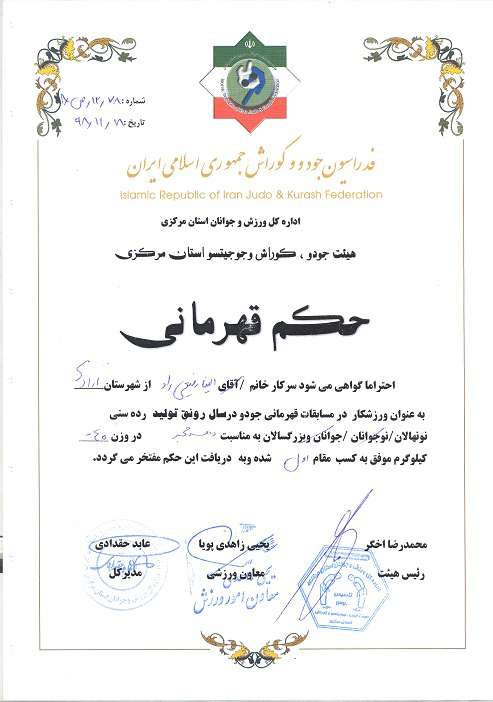 شماره:
تاریخ: ۹۸/۱۱/
فدراسیون جودو و کوراش جمهوری اسلامی ایران
Islamic Republic of Iran Judo & Kurash Federation
اداره کل ورزش و جوانان استان مرکزی
هیئت جودو ، کوراش وجوجیتسو استان مرکزی
حکم قهرمانی
احتراما گواهی می شود سرکار خانم /آقای راد از شهرستان
به عنوان ورزشکار در مسابقات قهرمانی جودو درسال رونق تولید رده سنی
نونهالان/نوجوانان /جوانان وبزرگسالان به مناسبت دهه فجر در وزن
کیلوگرم موفق به کسب مقام اول شده وبه دریافت این حکم مفتخر می گردد.
محمدرضا اخگر
رئیس هیئت
یحیی زاهدی پویا
معاون ورزشی
معاون امور ورزش
عابد حقدادی
مدیرکل